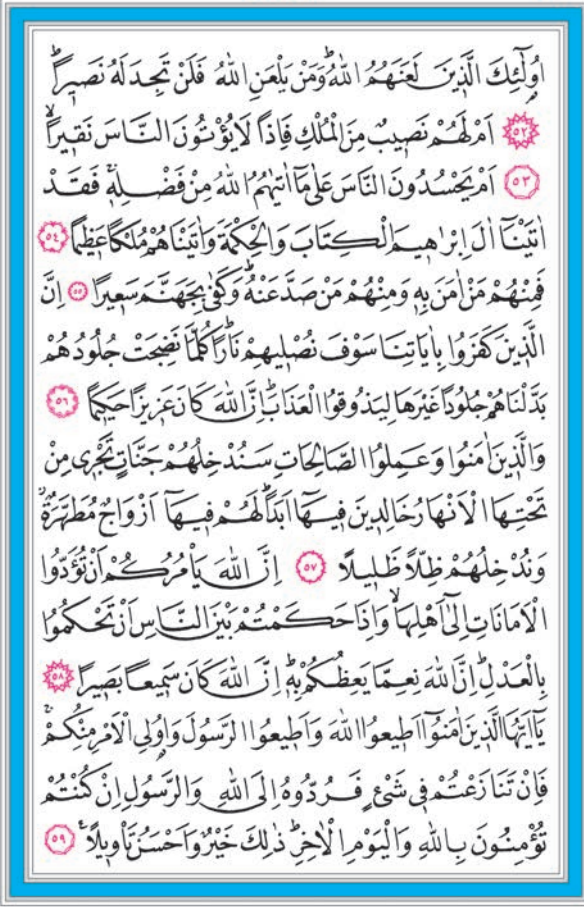 اُو۬لٰٓئِكَ الَّذ۪ينَ لَعَنَهُمُ اللّٰهُۜ وَمَنْ يَلْعَنِ اللّٰهُ فَلَنْ تَجِدَ لَهُ نَص۪يراًۜ
﴿٥٢﴾ اَمْ لَهُمْ نَص۪يبٌ مِنَ الْمُلْكِ فَاِذاً لَا يُؤْتُونَ النَّاسَ نَق۪يراًۙ
﴿٥٣﴾ اَمْ يَحْسُدُونَ النَّاسَ عَلٰى مَٓا اٰتٰيهُمُ اللّٰهُ مِنْ فَضْلِه۪ۚ فَقَدْ
اٰتَيْنَٓا اٰلَ اِبْرٰه۪يمَ الْكِتَابَ وَالْحِكْمَةَ وَاٰتَيْنَاهُمْ مُلْكاً عَظ۪يماً ﴿٥٤﴾
فَمِنْهُمْ مَنْ اٰمَنَ بِه۪ وَمِنْهُمْ مَنْ صَدَّ عَنْهُۜ وَكَفٰى بِجَهَنَّمَ سَع۪يراً ﴿٥٥﴾ اِنَّ
الَّذ۪ينَ كَفَرُوا بِاٰيَاتِنَا سَوْفَ نُصْل۪يهِمْ نَاراًۜ كُلَّمَا نَضِجَتْ جُلُودُهُمْ
بَدَّلْنَاهُمْ جُلُوداً غَيْرَهَا لِيَذُوقُوا الْعَذَابَۜ اِنَّ اللّٰهَ كَانَ عَز۪يزاً حَك۪يماً ﴿٥٦﴾
وَالَّذ۪ينَ اٰمَنُوا وَعَمِلُوا الصَّالِحَاتِ سَنُدْخِلُهُمْ جَنَّاتٍ تَجْر۪ي مِنْ
تَحْتِهَا الْاَنْهَارُ خَالِد۪ينَ ف۪يهَٓا اَبَداًۜ لَهُمْ ف۪يهَٓا اَزْوَاجٌ مُطَهَّرَةٌۘ
وَنُدْخِلُهُمْ ظِلاًّ ظَل۪يلاً ﴿٥٧﴾ اِنَّ اللّٰهَ يَأْمُرُكُمْ اَنْ تُؤَدُّوا
الْاَمَانَاتِ اِلٰٓى اَهْلِهَاۙ وَاِذَا حَكَمْتُمْ بَيْنَ النَّاسِ اَنْ تَحْكُمُوا
بِالْعَدْلِۜ اِنَّ اللّٰهَ نِعِمَّا يَعِظُكُمْ بِه۪ۜ اِنَّ اللّٰهَ كَانَ سَم۪يعاً بَص۪يراً ﴿٥٨﴾
يَٓا اَيُّهَا الَّذ۪ينَ اٰمَنُٓوا اَط۪يعُوا اللّٰهَ وَاَط۪يعُوا الرَّسُولَ وَاُو۬لِي الْاَمْرِ مِنْكُمْۚ
فَاِنْ تَنَازَعْتُمْ ف۪ي شَيْءٍ فَرُدُّوهُ اِلَى اللّٰهِ وَالرَّسُولِ اِنْ كُنْتُمْ
تُؤْمِنُونَ بِاللّٰهِ وَالْيَوْمِ الْاٰخِرِۜ ذٰلِكَ خَيْرٌ وَاَحْسَنُ تَأْو۪يلاً۟ ﴿٥٩﴾